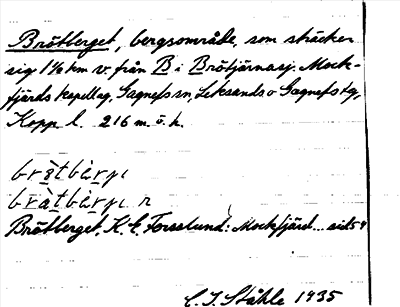 Brötberget, bergsområde, som sträcker
sig 1½ km v. från B i Brötjärnasj. Mock-
fjärds kapellag, Gagnefs sn, Leksands o Gagnefs tg,
Kopp. l. 216 m. ö. h.
Brötberget. K. E. Forsslund: Mockfjärd... sid 59
C. I. Ståhle 1935